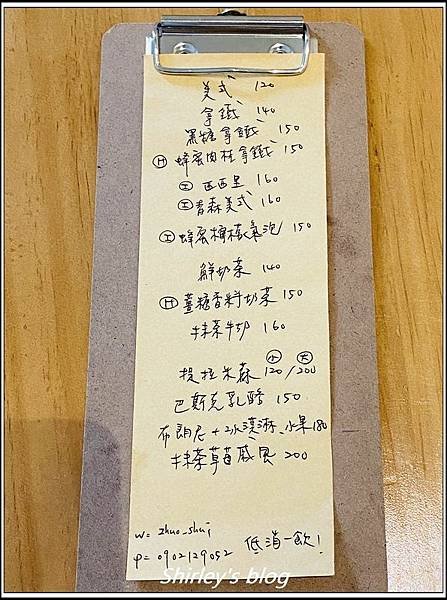 美式 120
拿鐵 140
黑糖拿鐵 150
Ⓗ 蜂蜜肉桂拿鐵 150
Ⓘ 西西里 160
Ⓘ 青森美式 160
Ⓘ 蜂蜜檸檬氣泡 150
鮮奶茶 140
Ⓗ 薑糖香料奶茶 150
抹茶牛奶 160
小 大
提拉米森 120/200
巴斯克乳酪 150
布朗尼+冰淇淋、水果 180
抹茶草莓戚風 200
w= zhuo_shui
p= 0902129052
低消一飲!
Shirley's blog